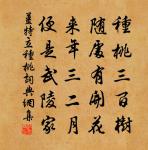 種桃三百樹
隨處有開花
來年三二月
便是武陵家
姜特立種桃詞典網集